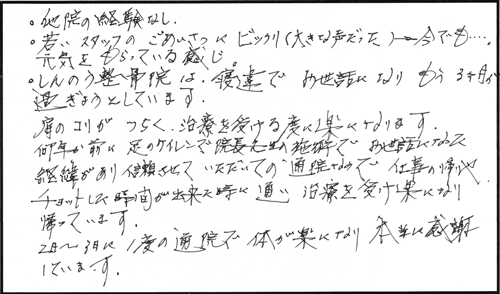 ・他院の経験なし.
・若いスタッフのごあいさつにビックリ(大きな声だった)→今でも….
元気をもらっている感じ
・しんのう整骨院は、優達でお世話になりもう3ヶ月が
過ぎようとしています.
肩のコリがつらく、治療を受ける度に楽になります
何年か前に足のケイレンで院長先生の施術でお世話になって
経緯があり信頼させていただいての通院なので仕事の帰りや
チョットした時間が出来た時に通い治療を受け楽になり
帰っています.
2日〜3日に1度の通院で体が楽になり本当に感謝
しています.